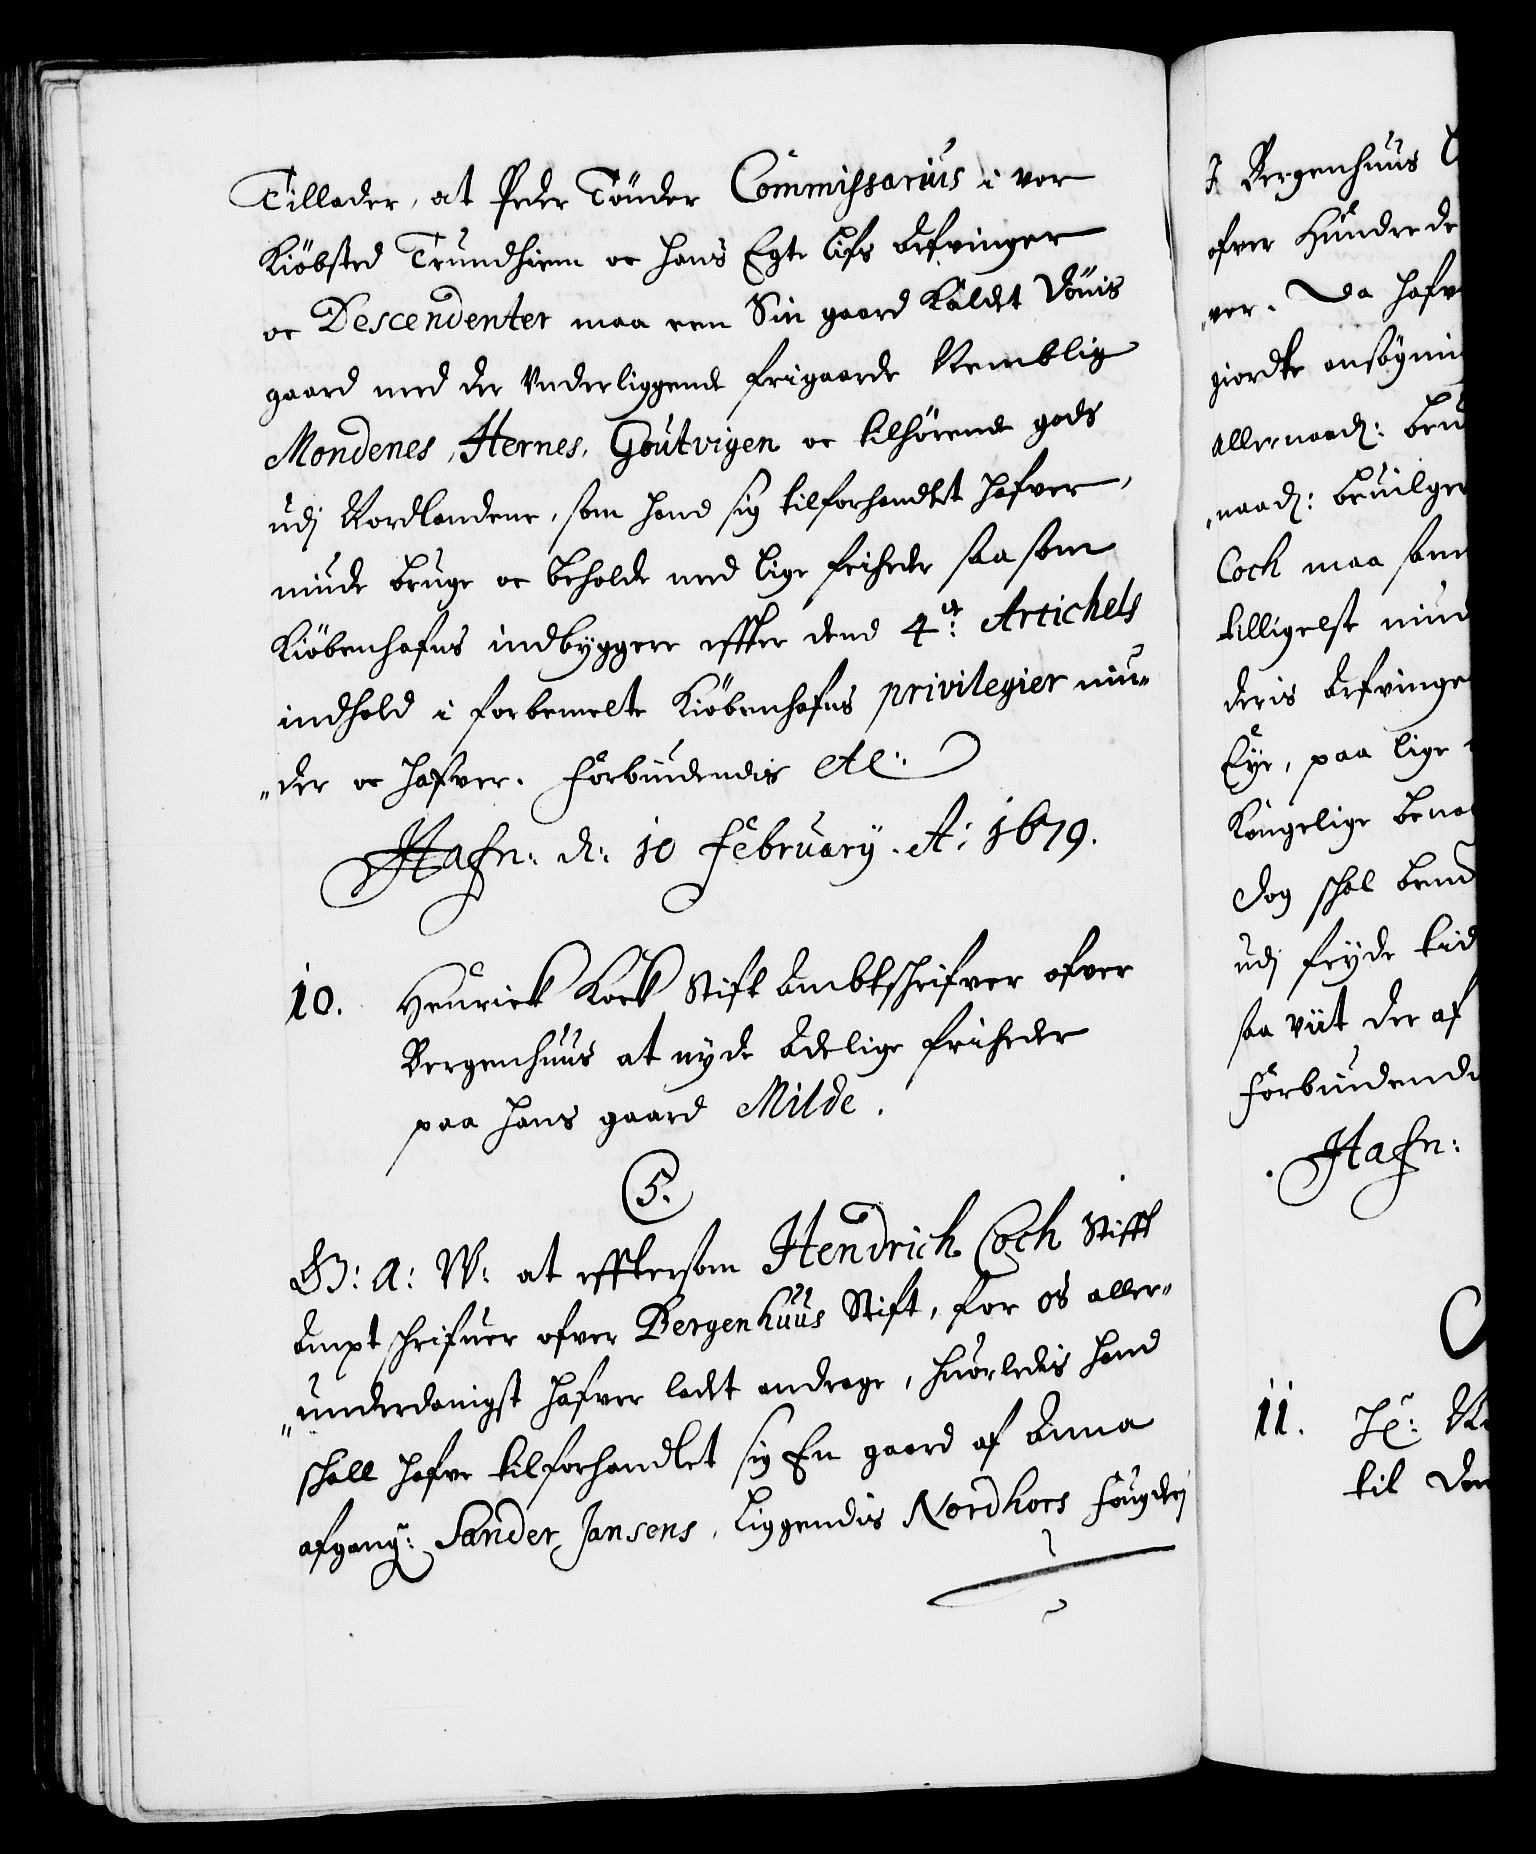 Tillader, at Peder Tönder Commissarius i vor
Kiöbsted Trundhiem oc hans Egte lifs Arfvinger
oc Descendenter maa een Sin gaard Kaldet Dönis
gaard med der Underliggende frigaarde Nemblig
Mondenes, Hernes, Goutvigen oc tilhörende gods
udj Nordlandene, som hand sig tilforhandlet hafver,
niude bruge oc beholde med lige friheder saa som
Kiöbenhafns indbyggere effter dend 4de: Artichels
indhold i forbemelte Kiöbenhafns privilegier niu„
„der oc hafver. Forbindendis etc:
Hafn: d: 10 February. A: 1679.
10. Henrick Kock Stift Ambtschrifver ofver
Bergenhuus at nyde Adelige friheder
paa hans gaard Milde.
5.
G: A: W: at efftersom Hendrich Coch Stifft
Ampt schrifuer ofver Bergenhuus Stift, for os aller„
„underdanigst hafver ladet andrage, huorledis hand
schall hafve tilforhandlet sig En gaard af Anna
afgang: Sander Jansens, liggendis Nordhors fougderj
I Bergenhuus
ofver Hundrede
„ver. Da hafv
giordte ansögnin
allernaad: be
„naad: bevilge
Coch maa sam
tilligelst niud
deris Arfvinge
Eye, paa lige
Kongelige bena
dog schal bem
udj fryde tid
saa viit der af
Forbindende
Hafn:
11. Jo: N
til Don